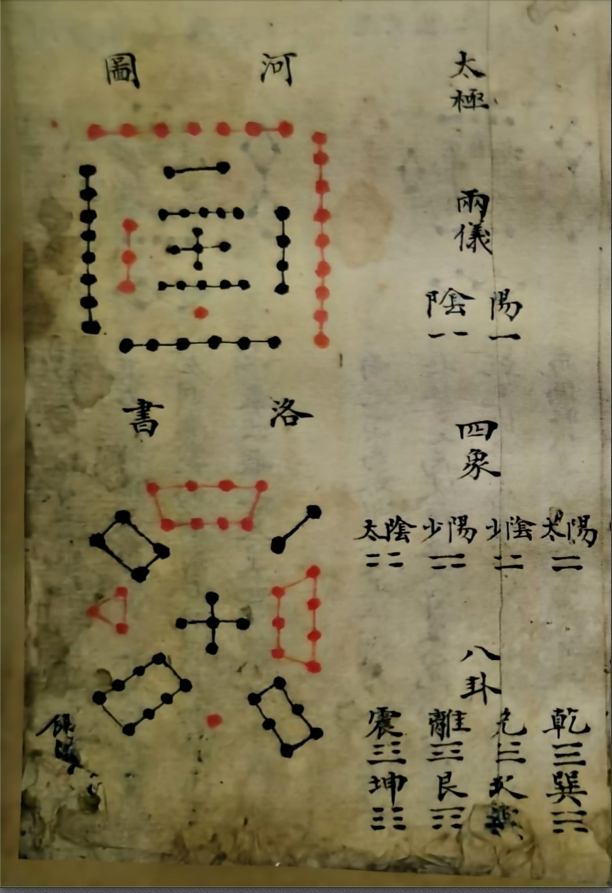 太極
兩儀
陽 陰
四象
太陽 少陰 少陽 太陰
八卦
乾 兌 離 震
巽 坎 艮 坤
河圖
洛書